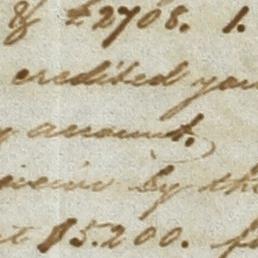 & £2708. 1.
credited your
account.
by the
$5.200.